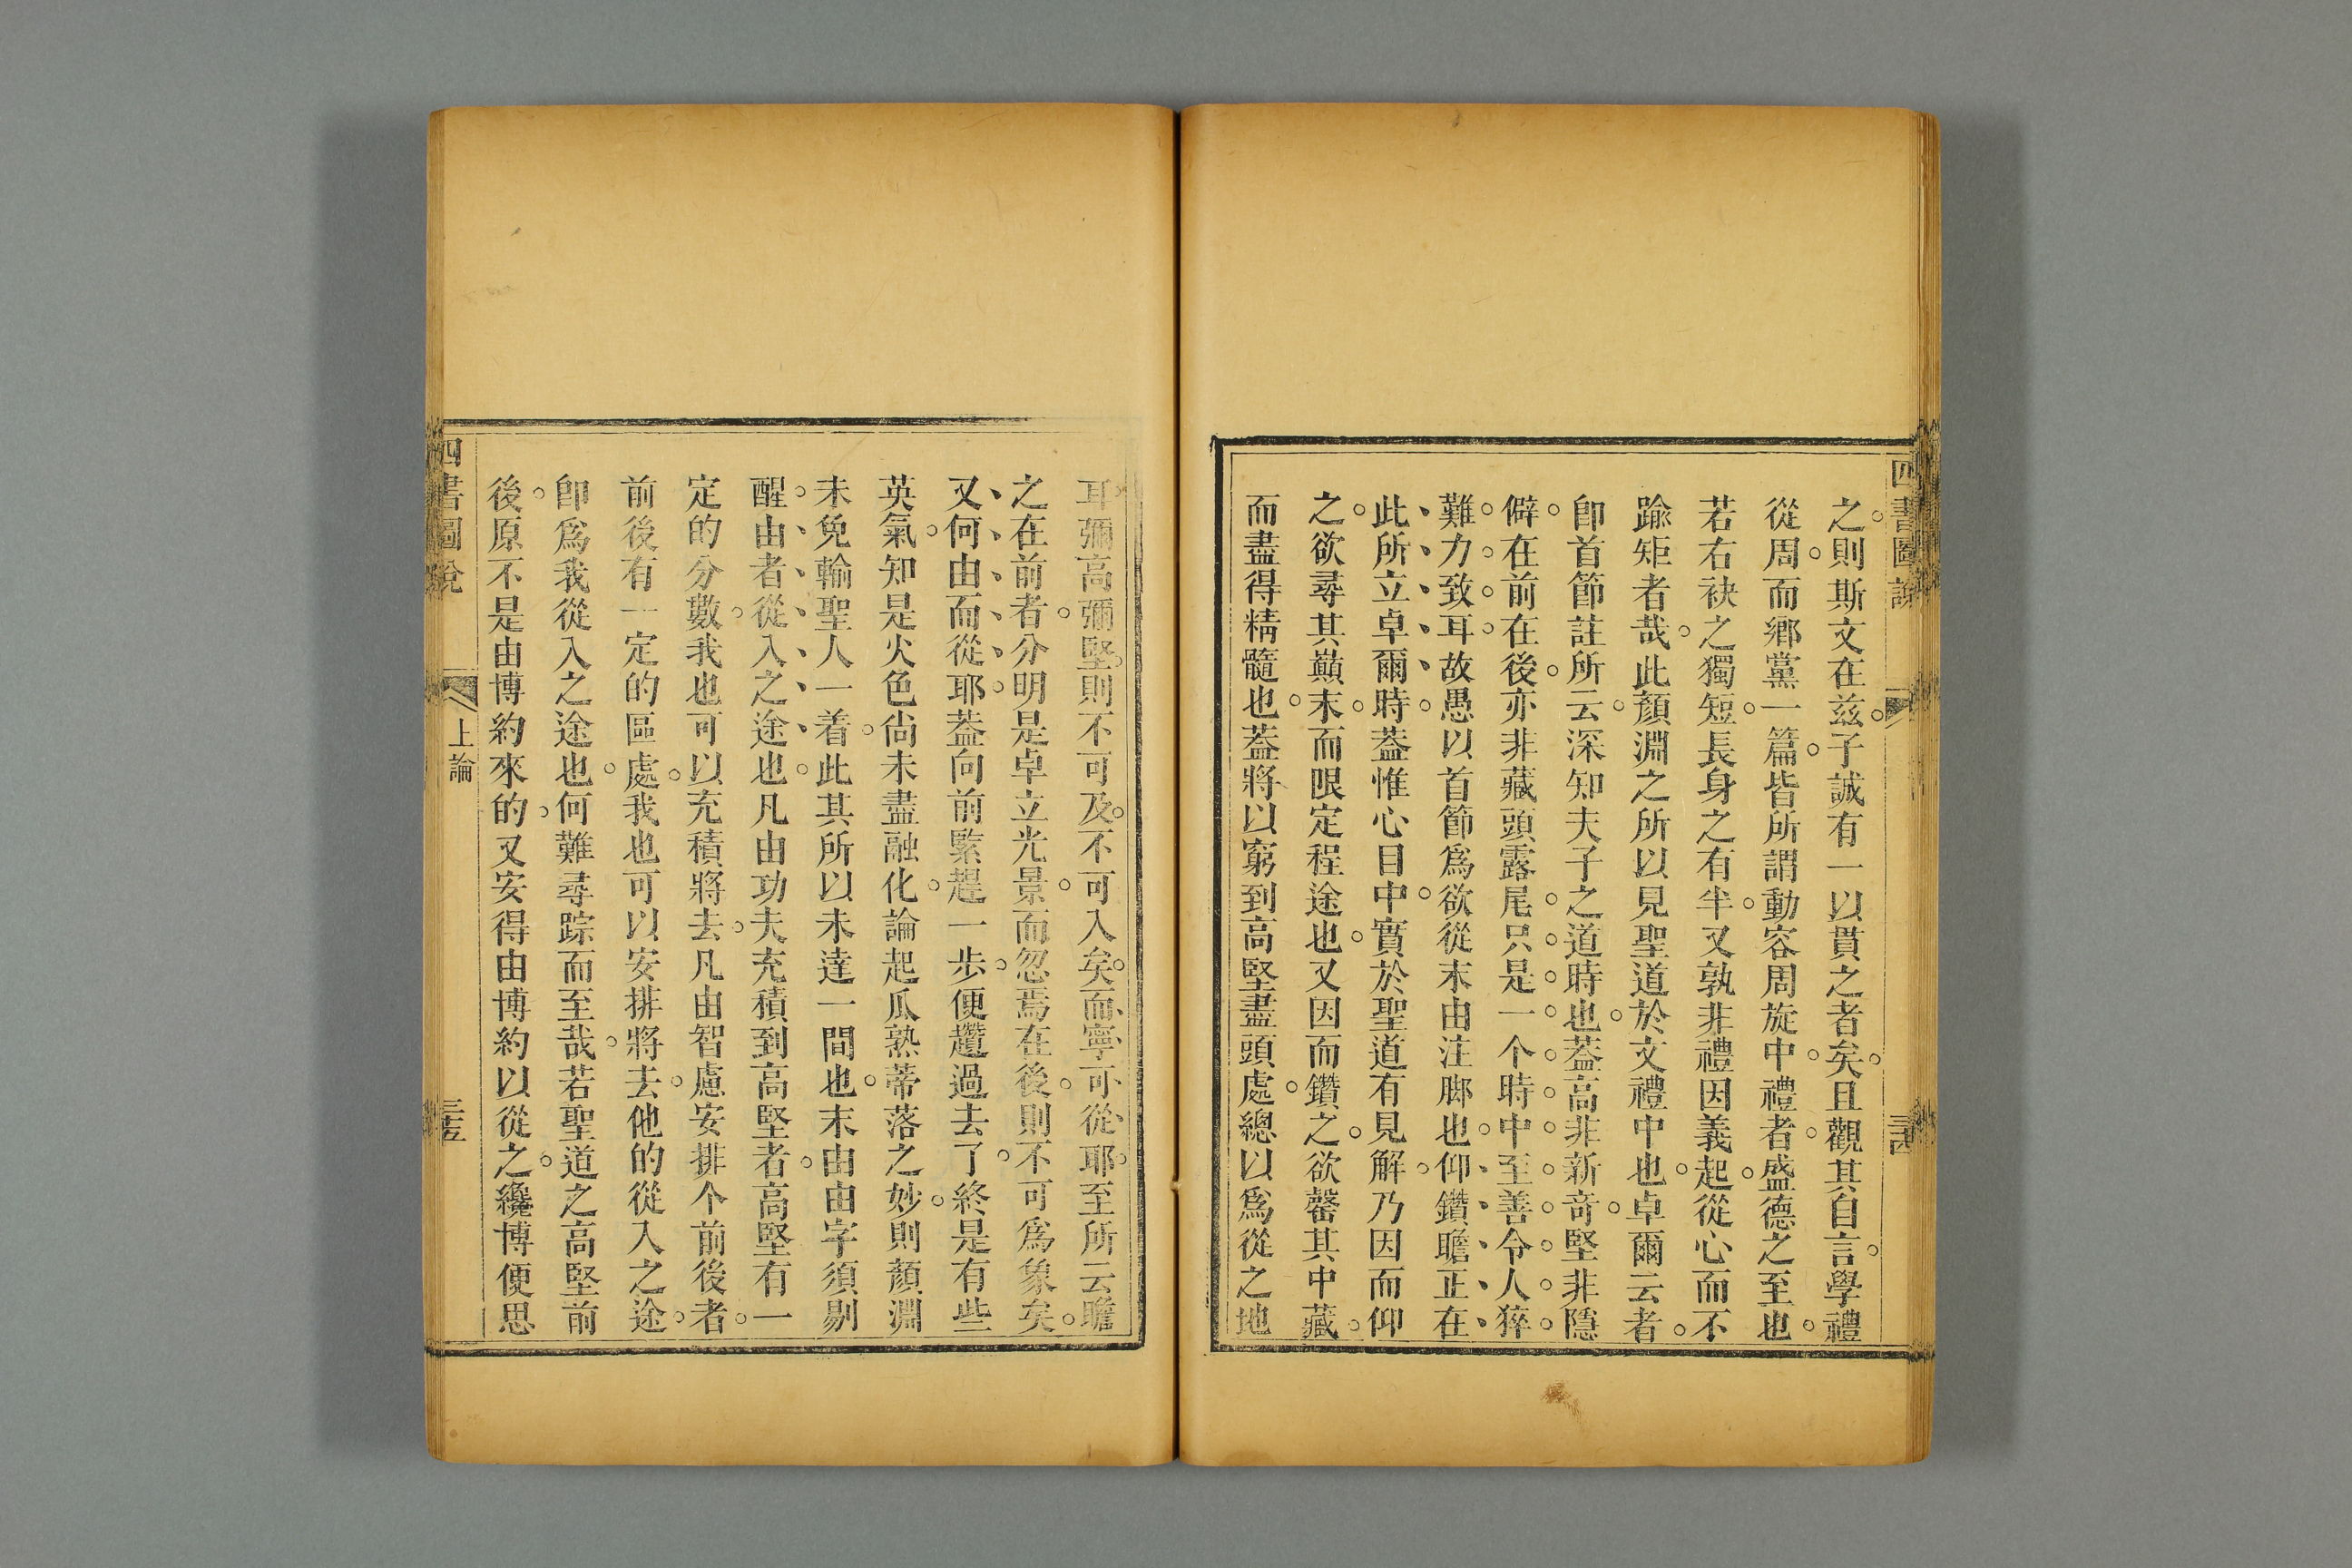 四書圖說
三十四
之則斯文在茲子誠有一以貫之者矣且觀其自言學禮
從周而鄉黨一篇皆所謂動容周旋中禮者盛德之至也
若右袂之獨短長身之有半又孰非禮因義起從心而不
踰矩者哉此顏淵之所以見聖道於文禮中也卓爾云者
卽首節註所云深知夫子之道時也葢高非新奇堅非隱
僻在前在後亦非藏頭露尾只是一个時中至善令人猝
難力致耳故愚以首節爲欲從末由注脚也仰鑽瞻正在
此所立卓爾時葢惟心目中實於聖道有見解乃因而仰
之欲尋其巔末而限定程途也又因而鑽之欲罄其中藏
而盡得精髓也葢將以窮到高堅盡頭處總以爲從之地
耳彌高彌堅則不可及不可入矣而寧可從耶至所云瞻
之在前者分明是卓立光景而忽焉在後則不可爲象矣
又何由而從耶葢向前緊趕一步便趲過去了終是有些
英氣知是火色尙未盡融化論起瓜熟蒂落之妙則顏淵
未免輸聖人一着此其所以未達一間也末由由字須剔
醒由者從入之途也凡由功夫充積到高堅者高堅有一
定的分數我也可以充積將去凡由智慮安排个前後者
前後有一定的區處我也可以安排將去他的從入之途
卽爲我從入之途也何難尋踪而至哉若聖道之高堅前
後原不是由博約來的又安得由博約以從之纔博便思
四書圖說
上論
三十五